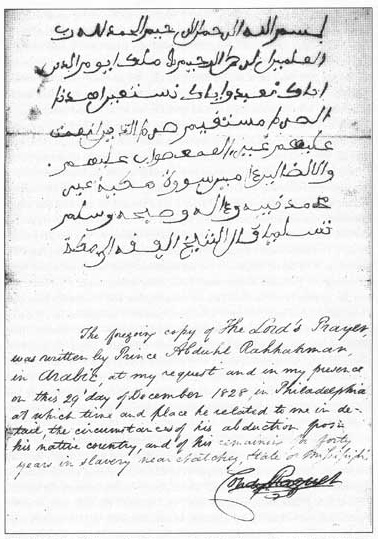 بسم الله الرحمان الرحيم الحمد لله رب
العلمين الرحيم ملك يوم الدين
اياك نعبد واياك نستعين اهدنا
مستقيم صراط الذين انعمت
عليهم غير عليهم
سورة مكية
محمد نبيه وءاله وصحبه وسلم
تسليما قال الشيخ
The foregoin copy of The Lord's Prayer,
was written by Prince Abduhl Rahhahman,
in Arabic, at my request and in my presence
on this 29 day of December 1828, in Philadelphia
at which time and place he related to me in de-
tail the circumstances of his abduction from
his native country, and of his forty
years in slavery near Natchez, State of Mississippi.
Condy Raguet